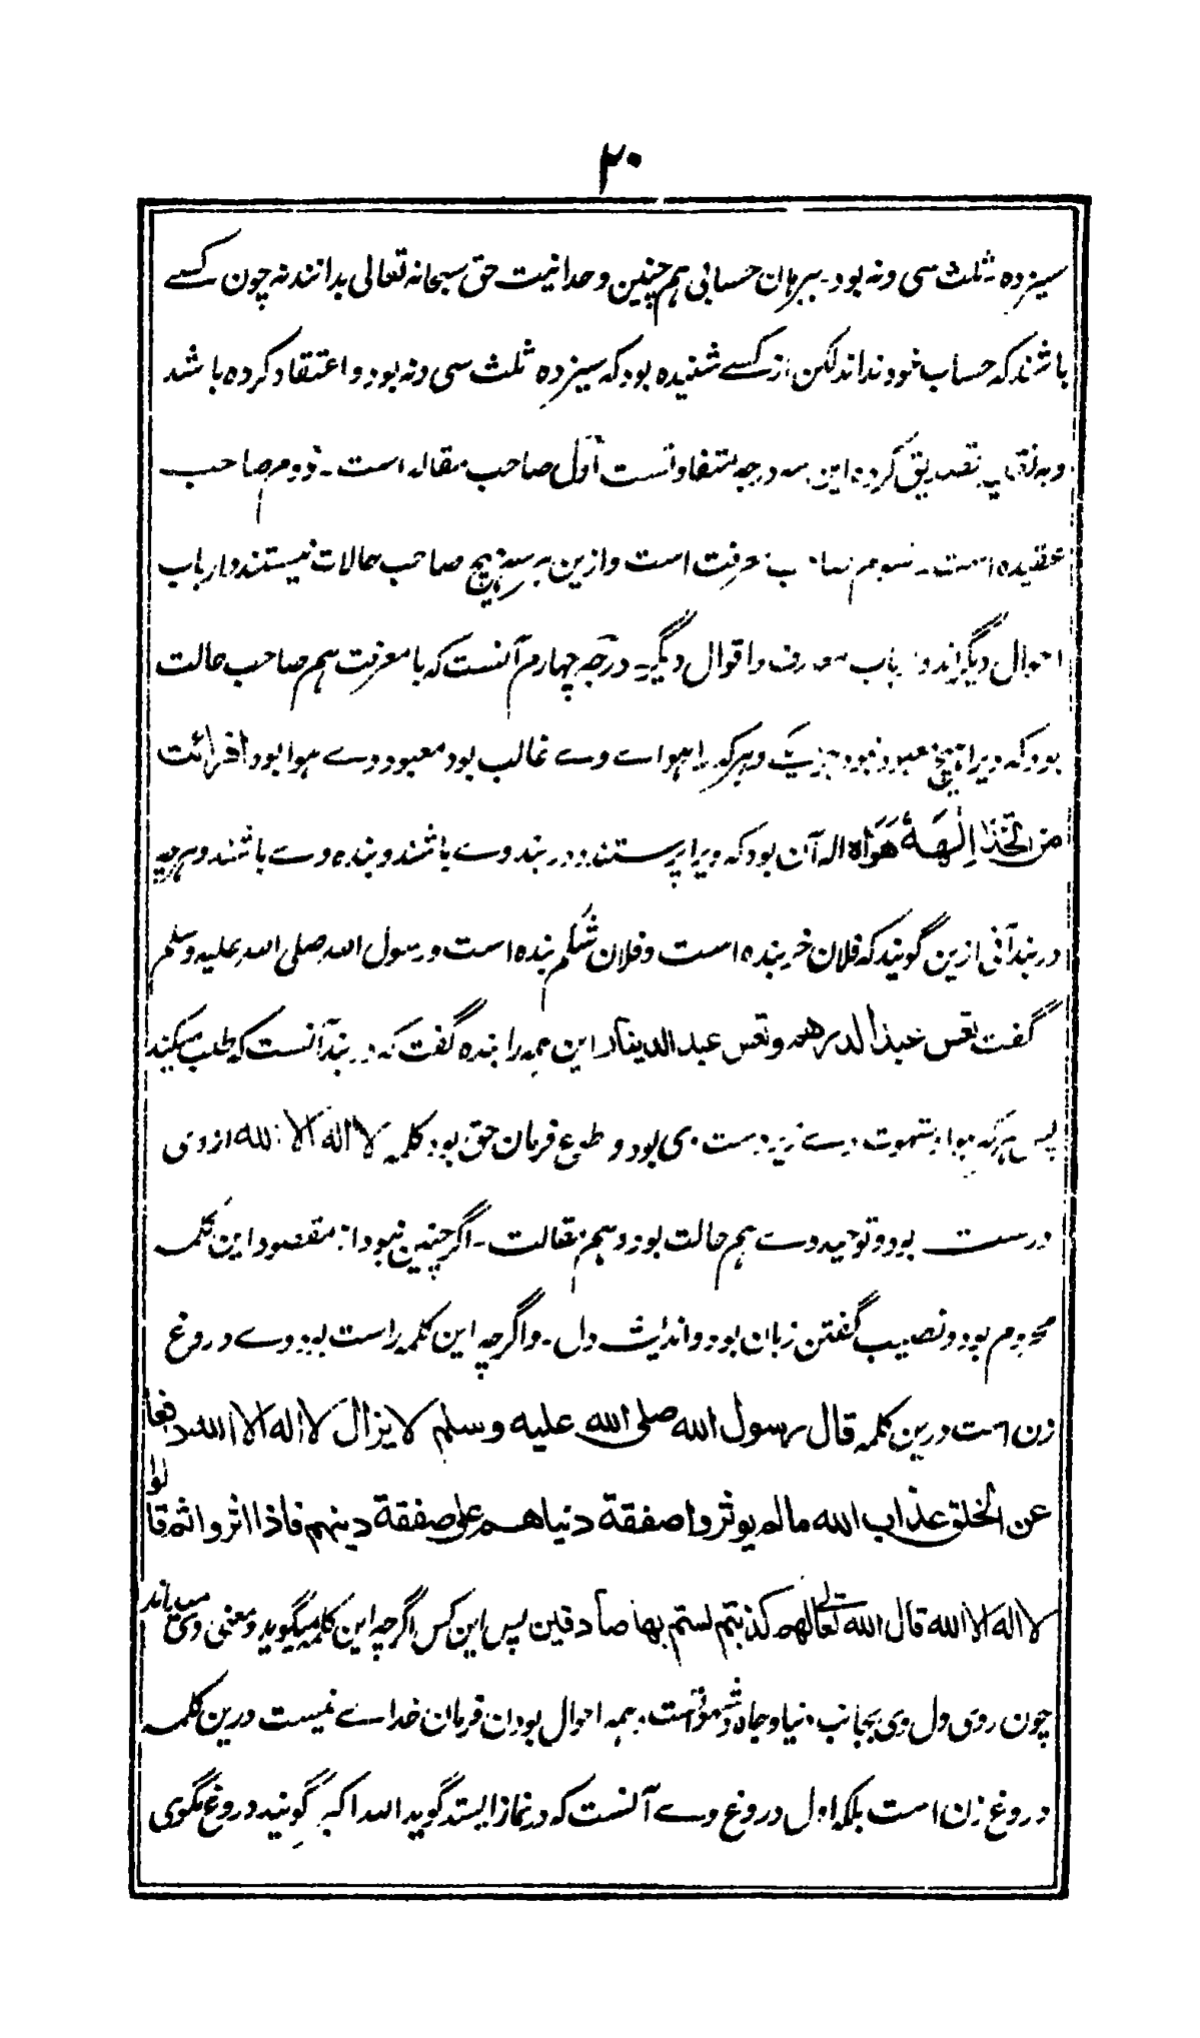 ۲۰
سیزده ثلث سی و نه بود۔ ببرهان حسابی هم چنین وحدانیت حق سبحانه تعالی بدانند نه چون کسے
باشند که حساب خود نداند لکن از کسے شنیده بود که سیزده ثلث سی و نه بود و اعتقاد کرده باشد
و به تقلید تصدیق کرده این سه درجه متفاوتست اول صاحب مقاله است۔ دوم صاحب
عقیده است۔ سوم صاحب معرفت است و ازین هر سه هیچ صاحب حالات نیستند و ارباب
احوال دیگراند و ارباب معارف و اقوال دیگر۔ درجه چهارم آنست که با معرفت هم صاحب حالت
بود که ویرا هیچ معبود نبود جز یک و هر که را هواے وے غالب بود معبود وے هوا بود افرائت
من اتخذ الٰهَهٗ هَوَاه اله آن بود که ویرا پرستند و در بند وے باشند و بنده وے باشند و هرچه
در بند آنی ازین گویند که فلان خر بنده است و فلان شکم بنده است و رسول الله صلی الله علیه وسلم
گفت تعس عبد الدرهم و تعس عبد الدینار این همه را بنده گفت که در بند آنست که طلب میکند
پس هر که هوا و شهوت وے زیر دست وی بود و طوع فرمان حق بود کلمه لا اله الا الله از وی
درست بود و توحید وے هم حالت بود و هم مقالت۔ اگر چنین نبود از مقصود این کلمه
محروم بود و نصیب گفتن زبان بود و اندیشه دل۔ و اگرچه این کلمه راست بود وے دروغ
زن است درین کلمه قال رسول الله صلی الله علیه وسلم لا یزال لا اله الا الله دفعا
عن الخلق عذاب الله مالم یوثروا صفقة دنیاهم علی صفقة دینهم فاذا اثروا ثم قالوا
لا اله الا الله قال الله تعالی لهم کذبتم لستم بها صادقین پس این کس اگرچه این کلمه میگوید و معنی وی میداند
چون روی دل وی بجانب دنیا و جاه و شهوتست همه احوال بودان فرمان خداے نیست درین کلمه
دروغ زن است بلکه اول دروغ وے آنست که در نماز ایستد گوید الله اکبر گویند دروغ مگوی